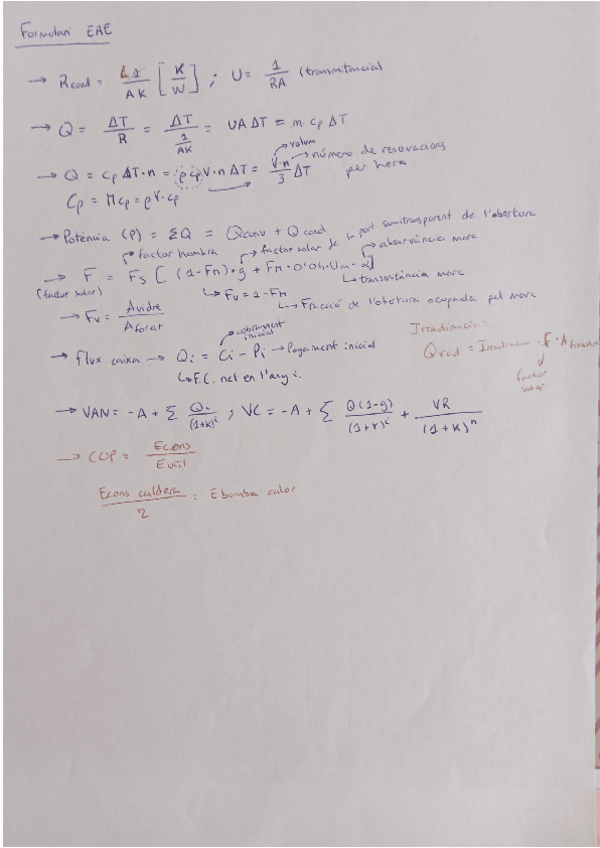 Formulari EAE
→ Rcond = L 1 / AK [K/W] ; U = 1/RA (transmitància)
→ Q = ΔT/R = ΔT/(1/AK) = UAΔT = m·cp ΔT
→volum
→ Q = cp ΔT·n = ρ cp V·n ΔT = V·n/3 ΔT →número de renovacions per hora
Cp = M cp = ρ V·cp
→ Potència (P) = ΣQ = Qconv + Q cond
→factor hombra →factor solar de la part semitransparent de l'obertura →absorvància marc
→ F = Fs [(1-FM)·g + FM·0'04·Um·α]
(factor solar) ↳ Fv = 1-FM ↳transmitància marc
↳ Fracció de l'obertura ocupada pel marc
→ Fv = Avidre / Aforat
→cobrament inicial
→ flux caixa → Qi = Ci - Pi →Pagament inicial
↳ F.C. net en l'any i.
Irradiación:
Qrad = Irradiació · F · A
factor solar
→ VAN = -A + Σ Qi/(1+k)^i ; VC = -A + Σ Q(1-g)/(1+r)^i + VR/(1+k)^n
→ COP = Econs / Eutil
Econs caldera / 2 = Ebomba calor